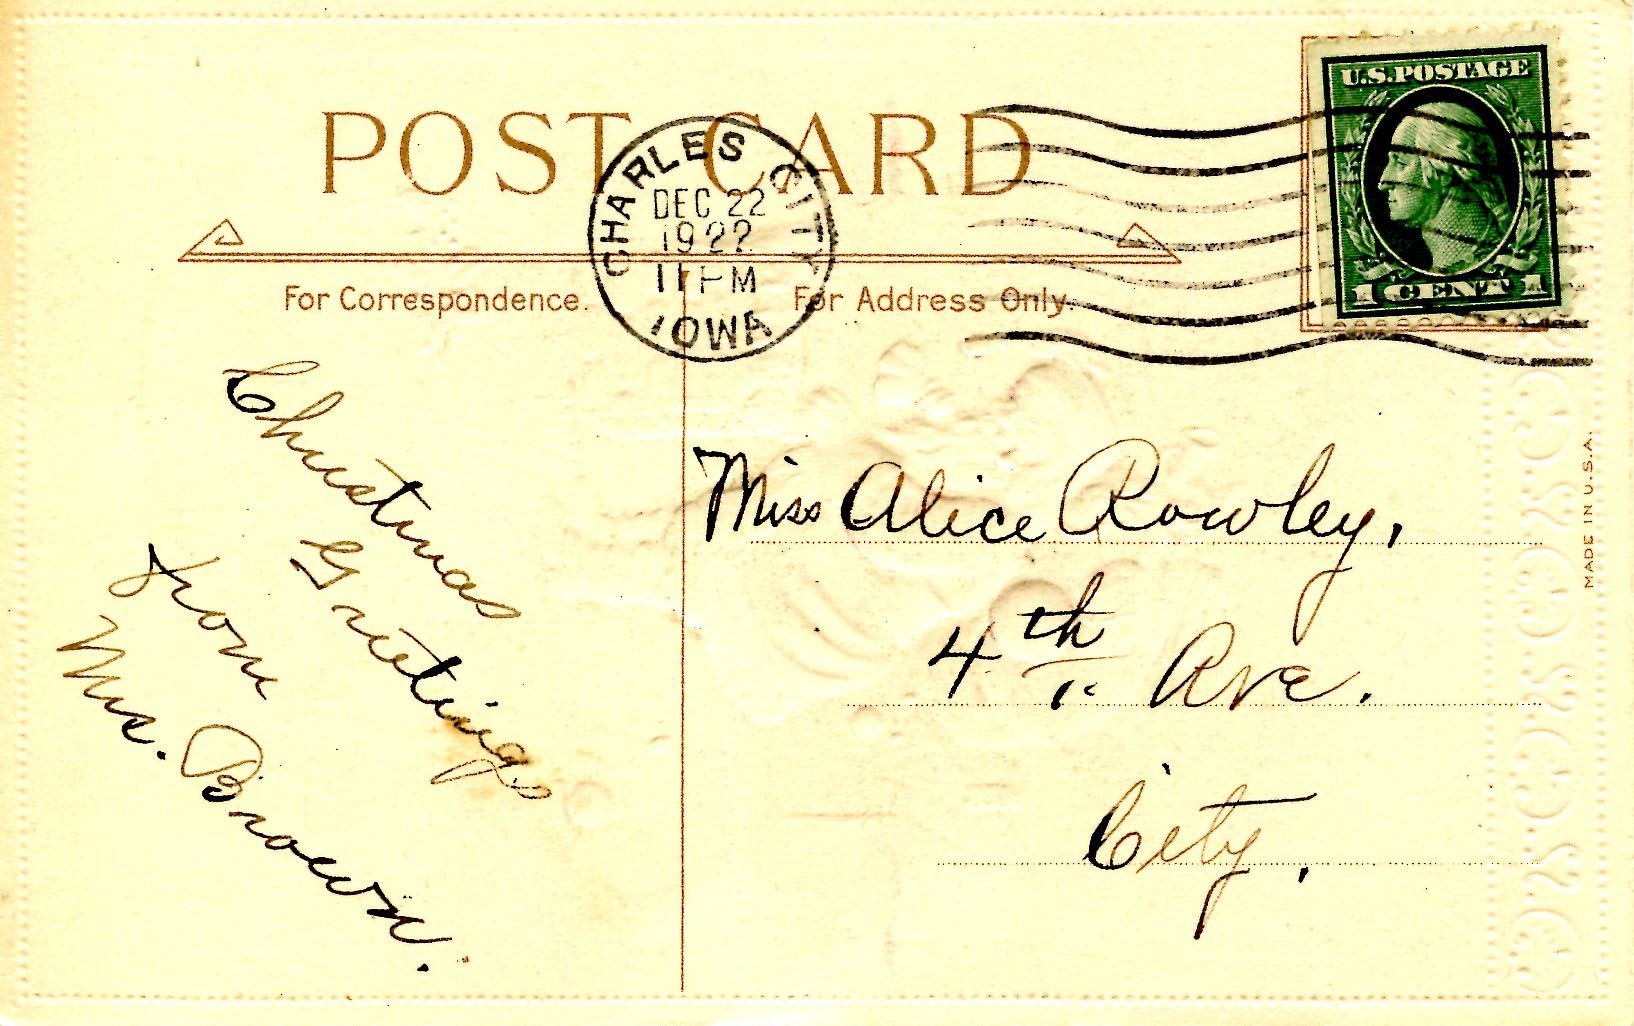 POST CARD
U.S. POSTAGE
1 CENT 1
CHARLES CITY
DEC 22
1922
11 PM
IOWA
For Correspondence.
For Address Only.
Christmas
Greetings
from
Mrs. Brown.
Miss Alice Rowley,
4th Ave.
City,
MADE IN U.S.A.